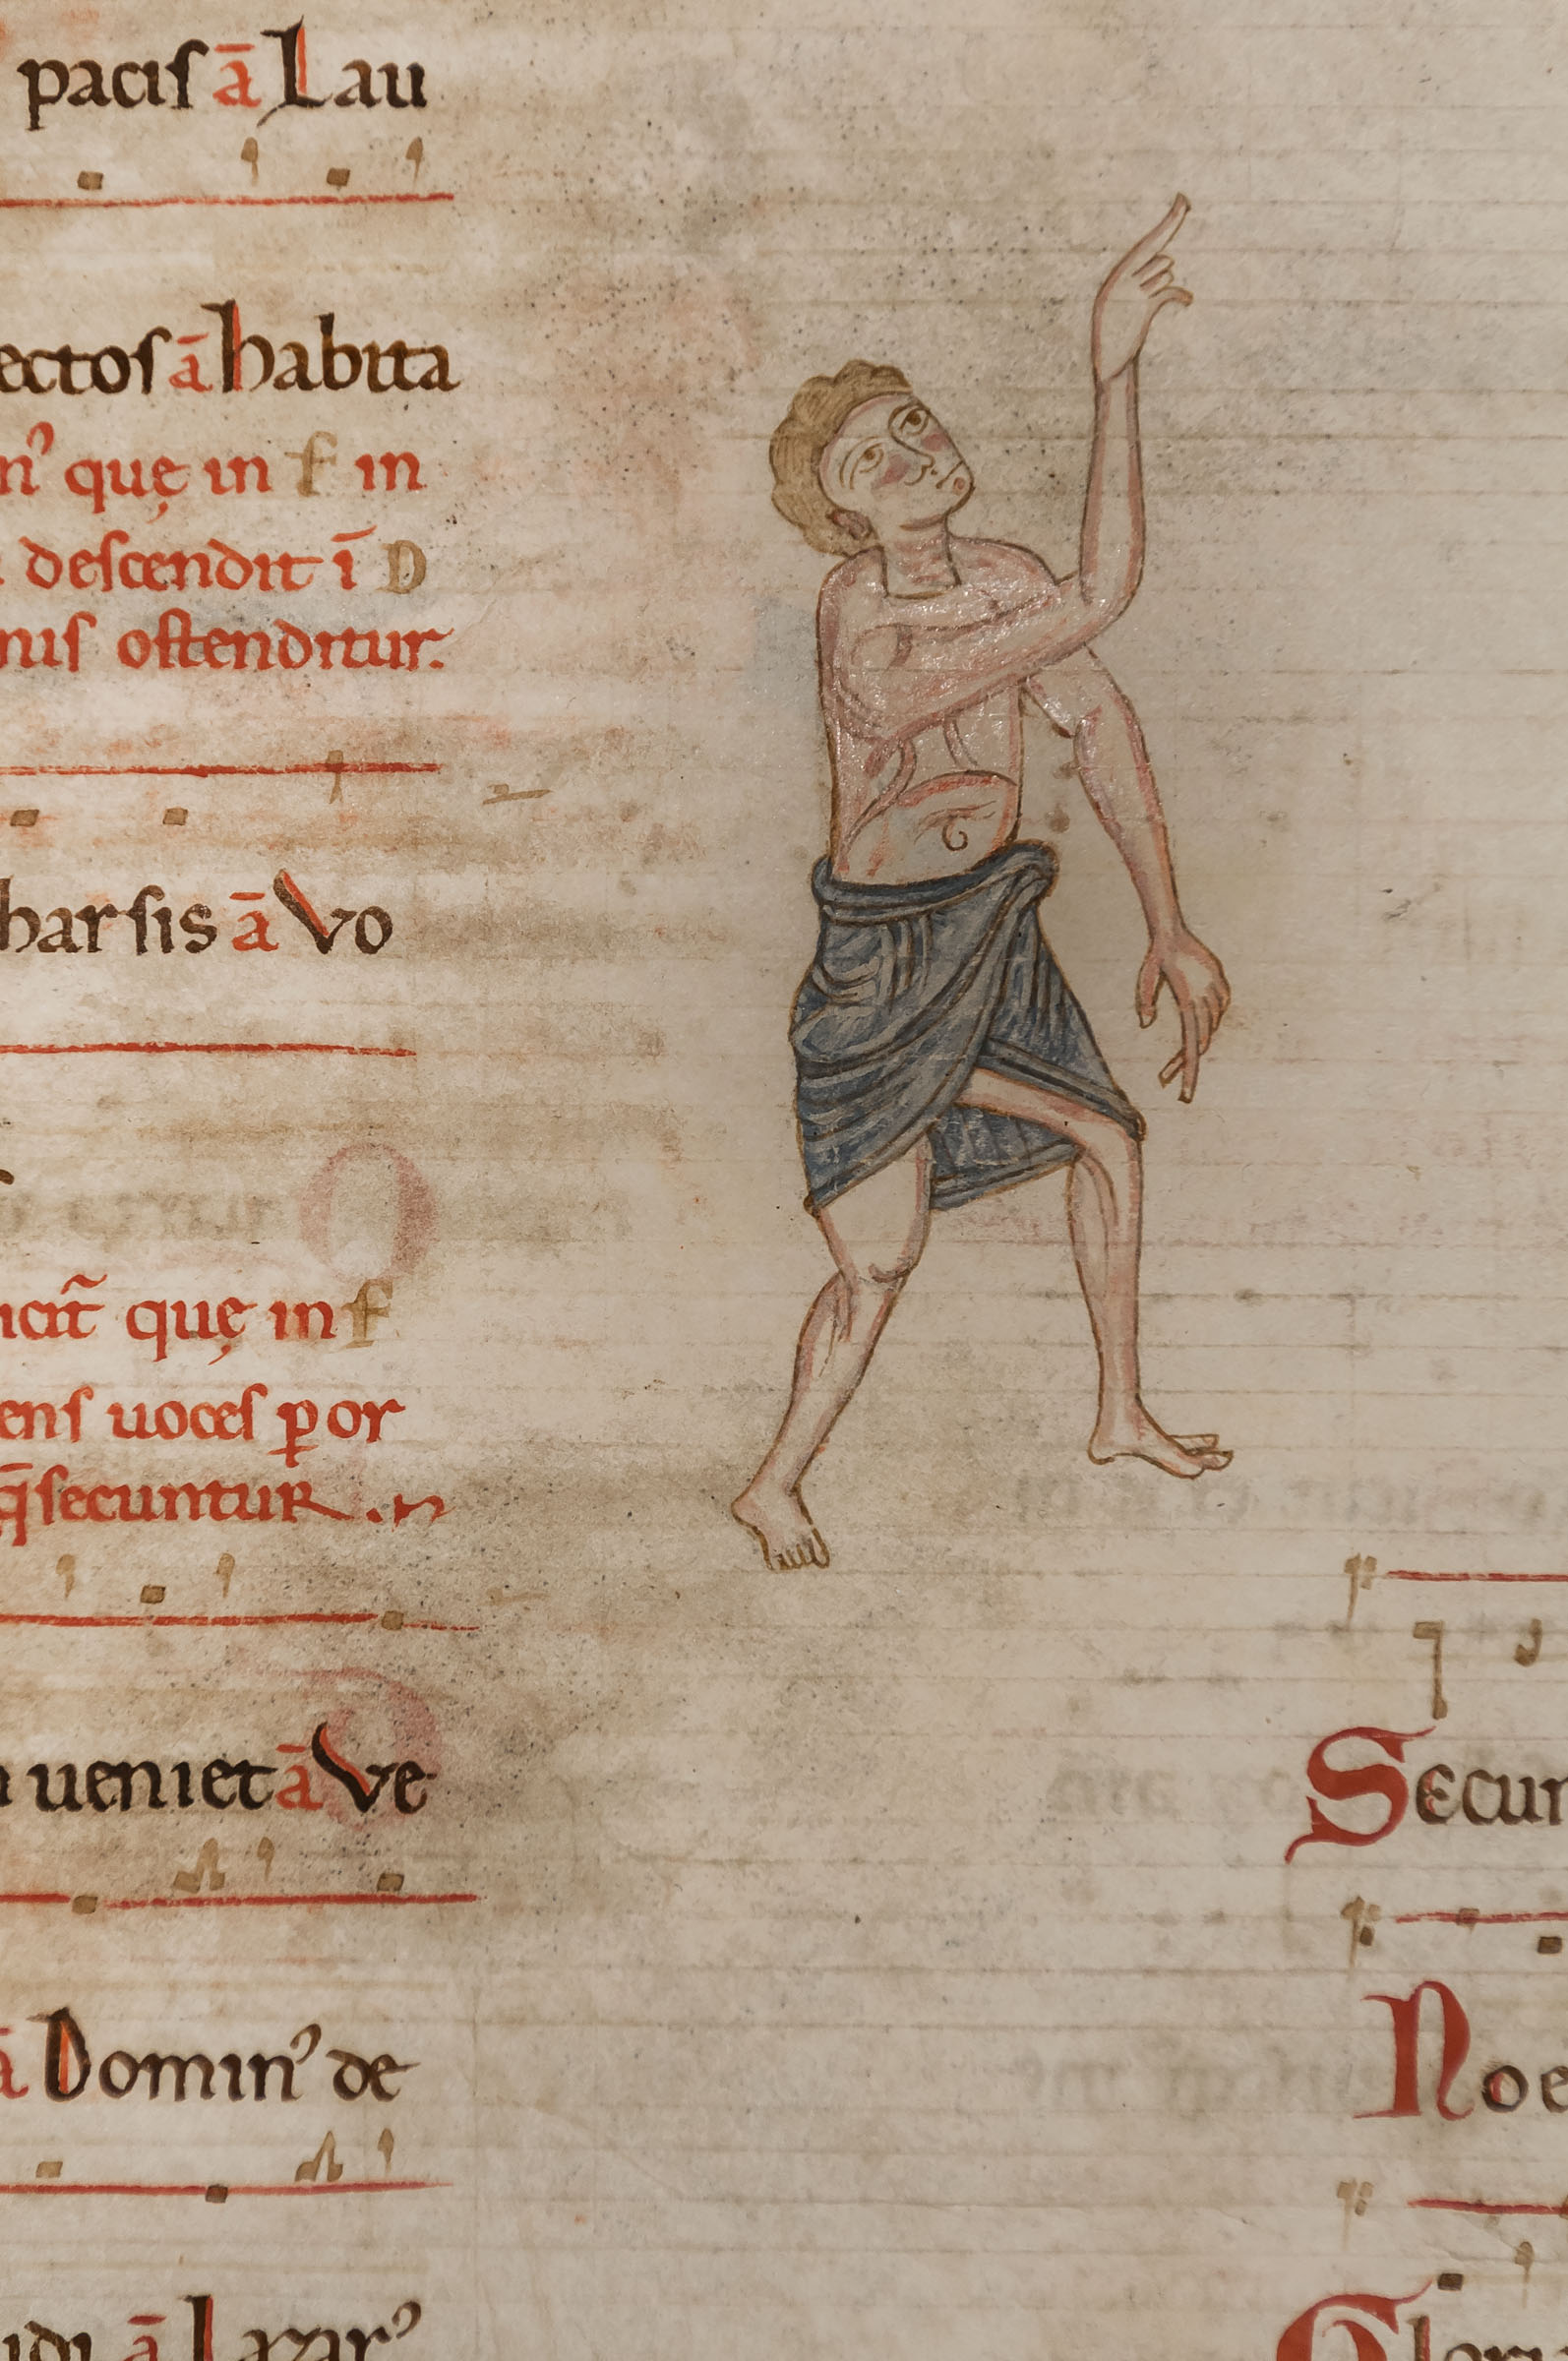 pacis ā Lau
ectos ā habita
n᾽ quę in f in
descendit ī D
nis ostenditur.
harsis ā Vo
icit̃ quę in f
ens uoces p or
q̄ secuntur
ueniet ā Ve
ā Domin᾽ de
idi ā Lazar᾽
Secun
Noe
Glori